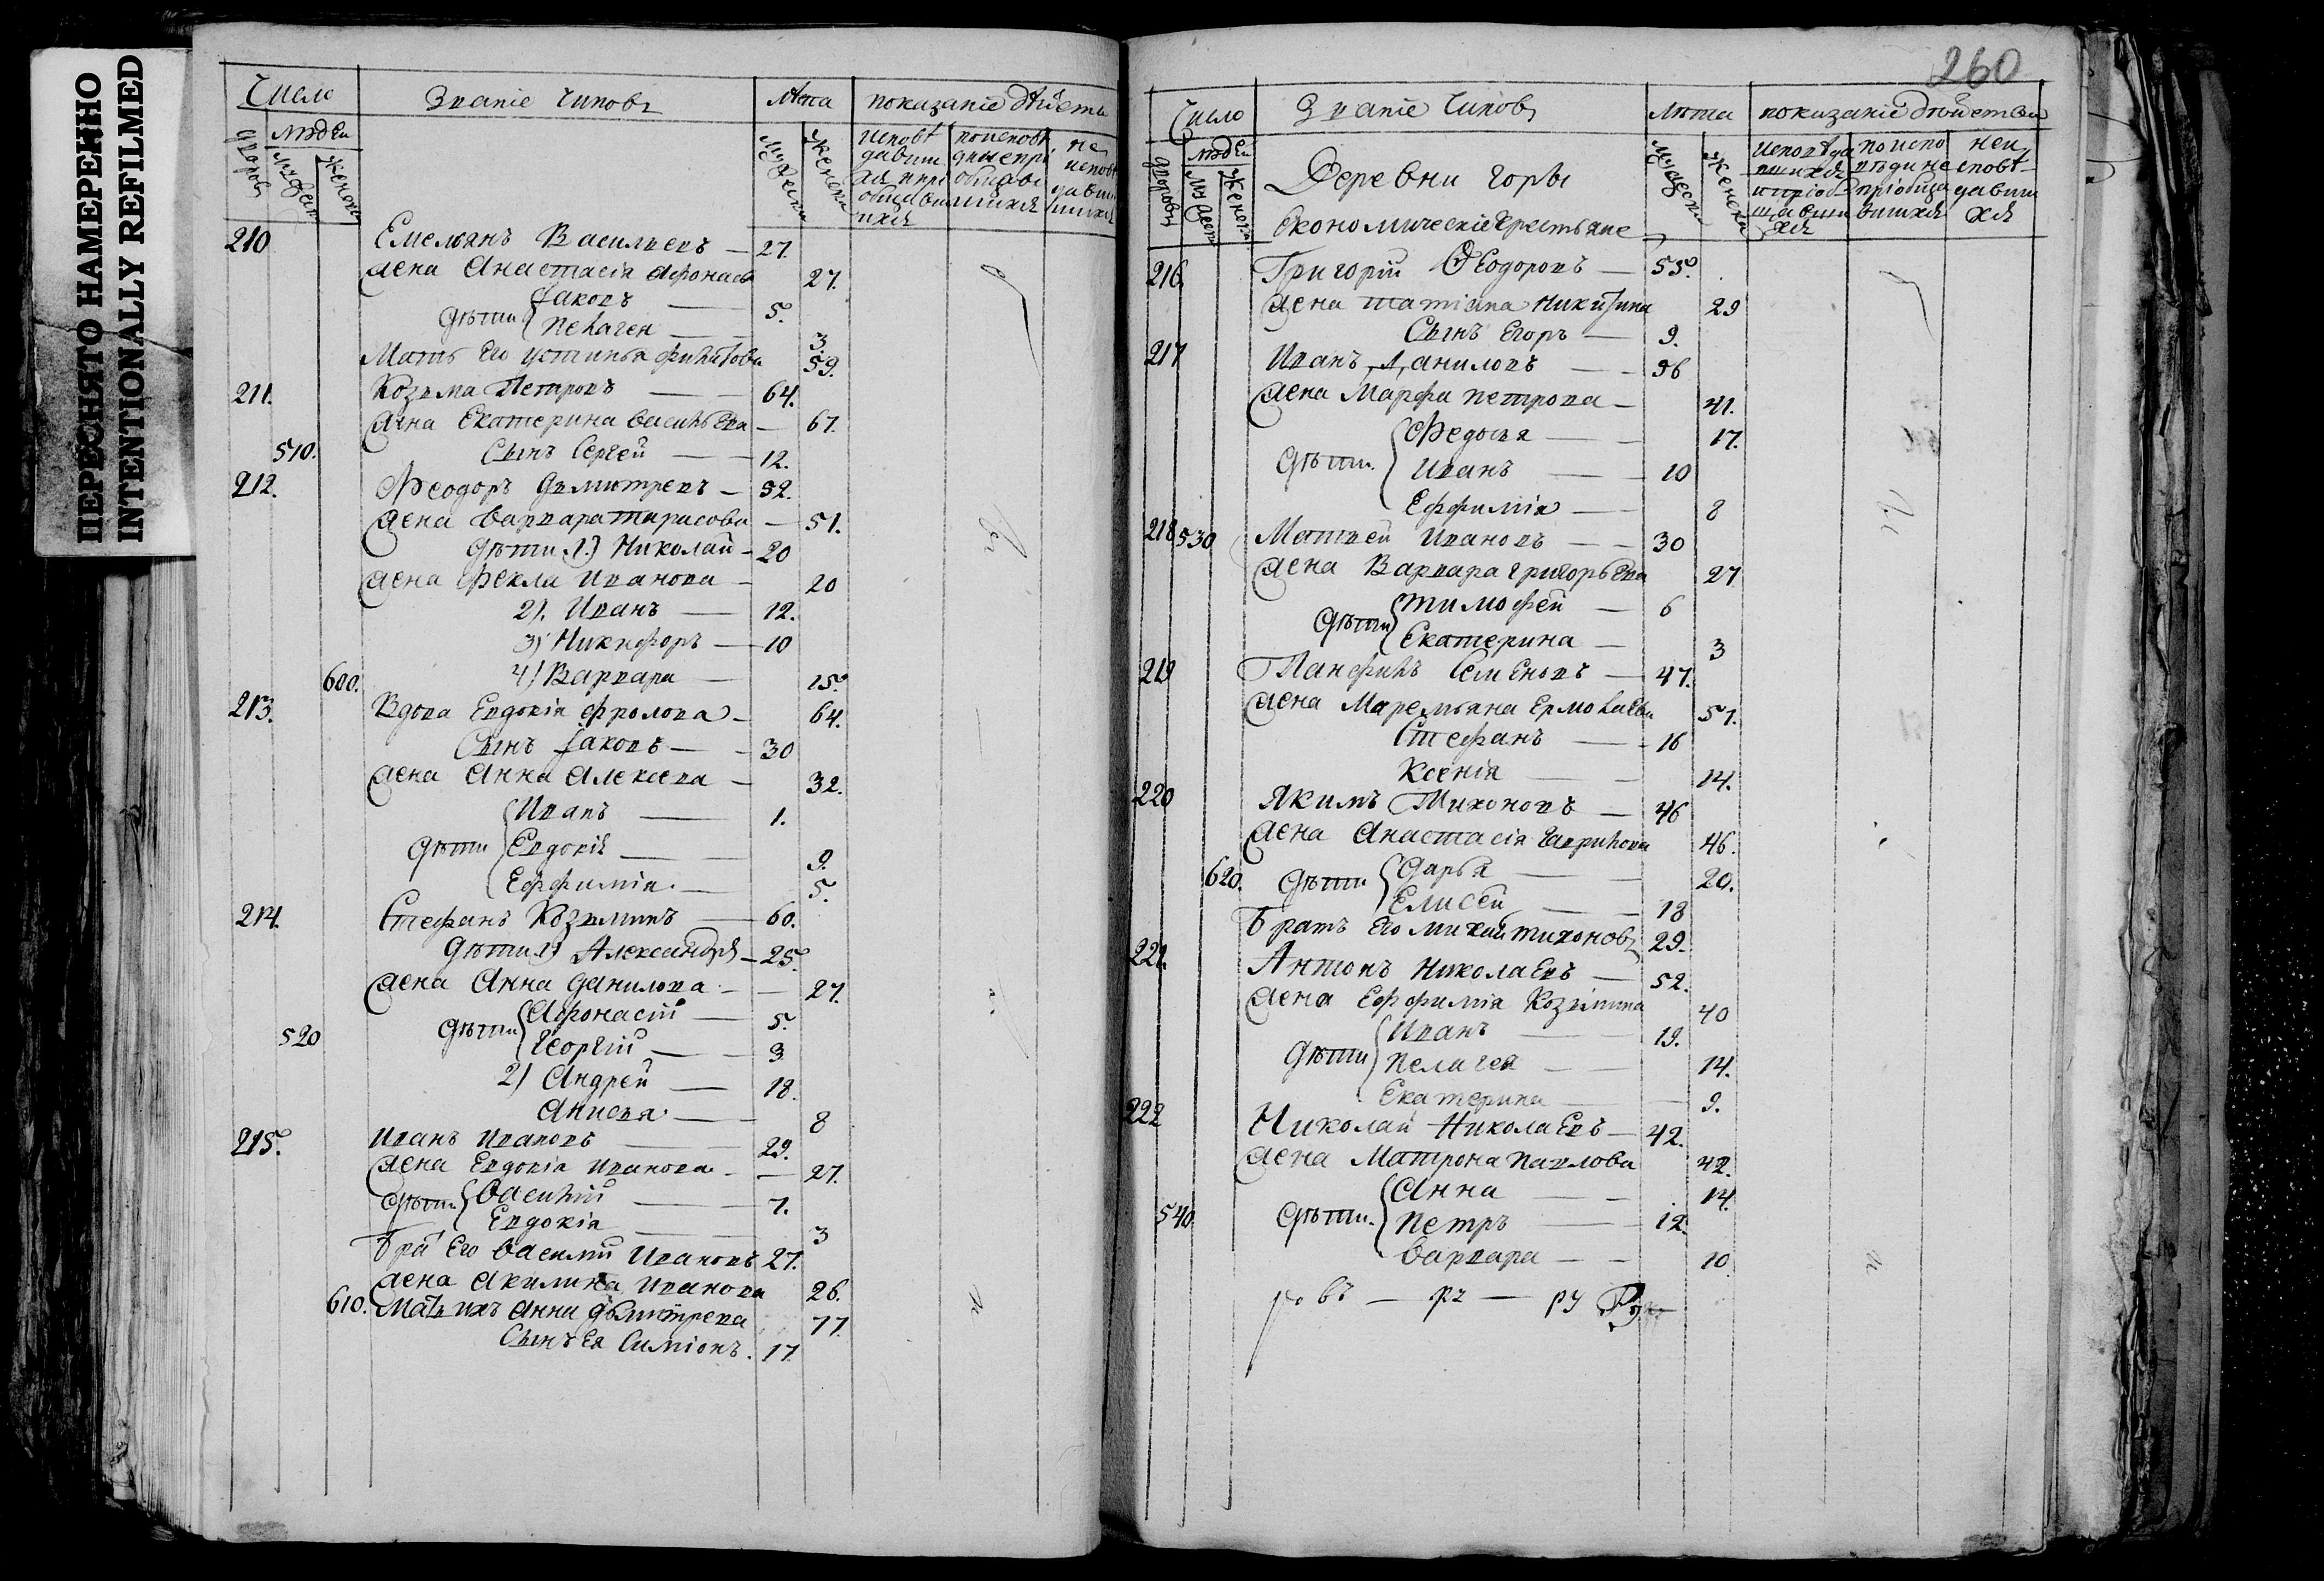 ПЕРЕСНЯТО НАМЕРЕННО
INTENTIONALLY REFILMED
Число
Званіе чиновъ
Лѣта
показаніе дѣйств
дворовъ
людей
мужеск
женска
мужеска
женска
исповѣ
давши
хся и прі
общавш
ихся
по исповѣ
дные прі
общавш
шихся
не
исповѣ
давши
шихся
210
Емельянъ Васильевъ — 27.
жена Анастасія Афонасьева 27.
дѣти Іаковъ — 5.
Пелагея — 3.
Мать его Устинья Филипова 59.
211. Козьма Петровъ — 64.
жена Екатерина Васильева — 67.
510. Сынъ Сергей — 12.
212. Феодоръ Дмитревъ — 52.
жена Варвара Тарасова — 51.
дѣти 1) Николай — 20
жена Фекла Иванова — 20
2). Иванъ — 12.
3) Никифоръ — 10
600. 4) Варвара — 15.
213. Вдова Евдокія Фролова — 64.
Сынъ Іаковъ — 30
жена Анна Алексеева — 32.
Иванъ — 1.
дѣти Евдокія — 9.
Еффимія — 5.
214. Стефанъ Козьминъ — 60.
дѣти 1) Александръ — 25.
жена Анна Данилова — 27.
Афонасій — 5.
520 дѣти Георгій — 3
2) Андрей — 18.
Анисья — 8
215. Иванъ Ивановъ 29.
жена Евдокія Иванова — 27.
дѣти Василій — 7.
Евдокія — 3
Бра его Василій Ивановъ 27.
жена Акилина Иванова 26.
610. Мать ихъ Анна Дмитрева 77.
Сынъ ея Симіонъ. 17.
260
Число
Званіе чиновъ
Лѣта
показаніе дѣйствъ
дворовъ
людей
мужеск
женска
Деревни Горы
Економическіе крестьяне
мужеска
женска
исповѣда
вшихся
и пріоб
щавши
хся
по испо
вѣди не
пріобща
вшихся
неи
сповѣ
давши
хся
216. Григорій Феодоровъ — 55.
жена Татіана Никитина 29
Сынъ Егоръ — 9.
217 Иванъ Даниловъ — 36
жена Марфа Петрова — 41.
Федосья — 17.
дѣти. Иванъ — 10
Еффимія — 8
218 530 Матвей Ивановъ — 30
жена Варвара Григорьева 27
дѣти Тимофей — 6
Екатерина — 3
219 Панфилъ Семеновъ — 47.
жена Маремьяна Ермолаева 51.
Стефанъ — 16
Ксенія — 14.
220 Якимъ Тихоновъ — 46
жена Анастасія Гаврилова 46.
620. дѣти Дарья — 20.
Елисей — 18
Братъ его Михаи Тихоновъ 29.
221. Антонъ Николаевъ — 52.
жена Еффимія Козьмина 40
Иванъ — 19.
дѣти Пелагея — 14.
Екатерина — 9.
222 Николай Николаевъ — 42.
жена Матрона Павлова 42.
Анна — 14.
540 дѣти. Петръ — 12.
Варвара — 10.